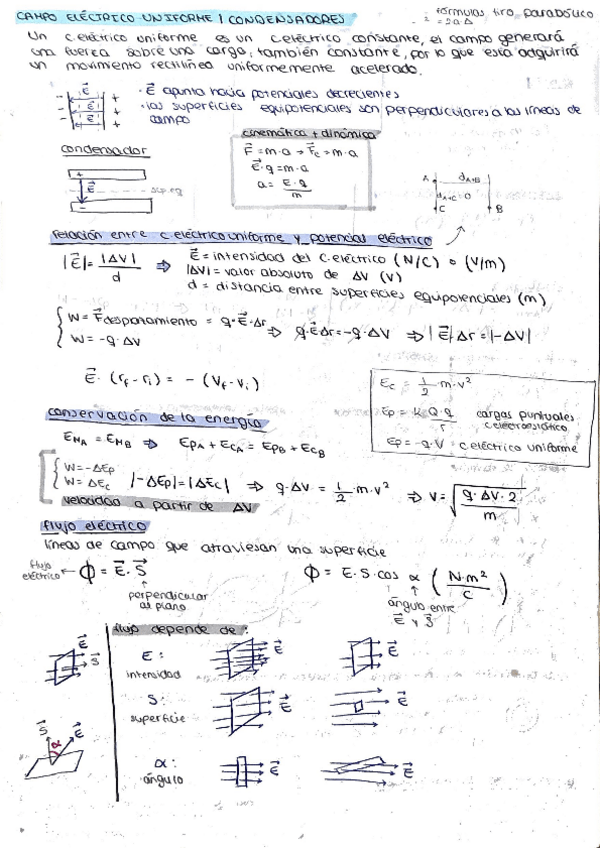 CAMPO ELÉCTRICO UNIFORME / CONDENSADORES
fórmulas tiro parabólico
Un c.eléctrico uniforme es un c.eléctrico constante, el campo generará
una fuerza sobre una carga, también constante, por lo que esta adquirirá
un movimiento rectilínea uniformemente acelerado.
· E⃗ apunta hacia potenciales decrecientes
· las superficies equipotenciales son perpendiculares a las líneas de
campo
condensador
+
E⃗
sup.eq
-
cinemática + dinámica
F⃗ = m·a → F⃗c = m·a
E⃗·q = m·a
a = E·q / m
A dA→B
dA→C = 0
C B
relación entre c.eléctrico uniforme y potencias eléctrico
|E⃗| = |ΔV| / d ⇒ E⃗ = intensidad del c.eléctrico (N/C) o (V/m)
|ΔV| = valor absoluto de ΔV (V)
d = distancia entre superficies equipotenciales (m)
W = F⃗desplazamiento = q·E⃗·Δr ⇒ q·E⃗Δr = -q·ΔV ⇒ |E⃗|Δr = |-ΔV|
W = -q·ΔV
E⃗·(rf - ri) = -(Vf - Vi)
Ec = 1/2 ·m·v²
Ep = K·Q·q / r cargas puntuales
c.electroestático
Ep = -q·V = c.eléctrico uniforme
conservación de la energía
EMA = EMB ⇒ EpA + EcA = EpB + EcB
W = -ΔEp
W = ΔEc |-ΔEp| = |ΔEc| ⇒ q·ΔV = 1/2 ·m·v² ⇒ v = √(q·ΔV·2 / m)
velocidad a partir de ΔV
flujo eléctrico
líneas de campo que atraviesan una superficie
flujo eléctrico ← Φ = E⃗·S⃗ Φ = E·S·cos α (N·m² / C)
perpendicular
al plano
ángulo entre
E⃗ y S⃗
flujo depende de:
E⃗
S⃗
E:
intensidad
E⃗
E⃗
S:
superficie
E⃗
E⃗
S⃗
α
E⃗
α:
ángulo
E⃗
E⃗